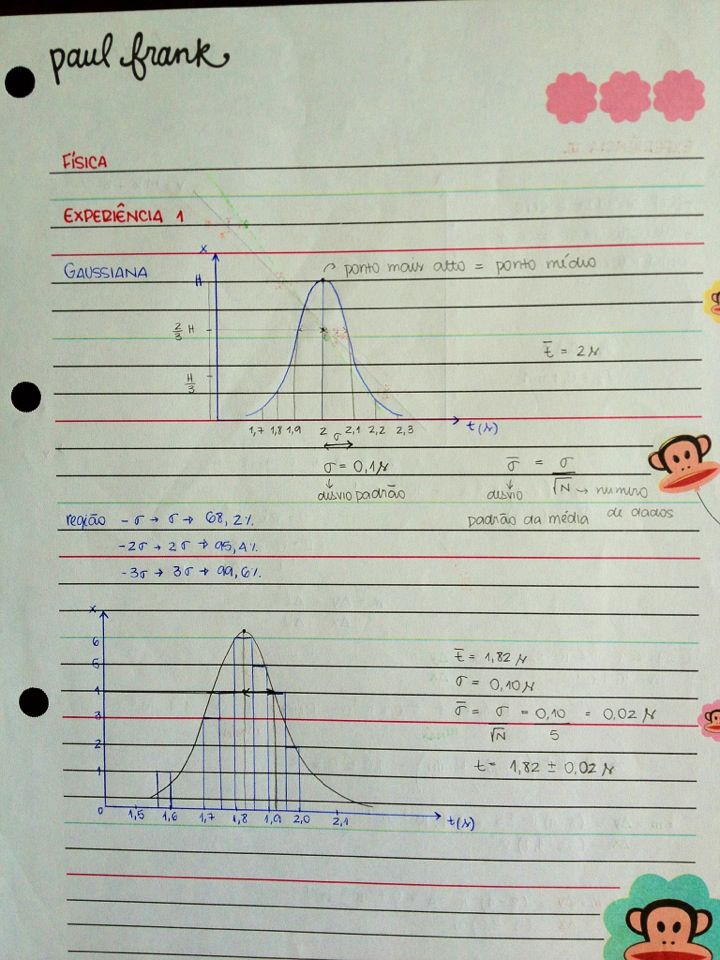 paul frank
FÍSICA
EXPERIÊNCIA 1
GAUSSIANA
x
ponto mais alto = ponto médio
H
2/3 H
H/3
t̅ = 2 s
1,7 1,8 1,9 2 2,1 2,2 2,3 t(s)
σ
σ = 0,1 s
desvio padrão
σ̅ = σ/√N → numero de dados
desvio padrão da média
região -σ → σ → 68,2%
-2σ → 2σ → 95,4%
-3σ → 3σ → 99,6%
x
6
5
4
3
2
1
0 1,5 1,6 1,7 1,8 1,9 2,0 2,1 t(s)
t̅ = 1,82 s
σ = 0,10 s
σ̅ = σ/√N = 0,10/5 = 0,02 s
t = 1,82 ± 0,02 s